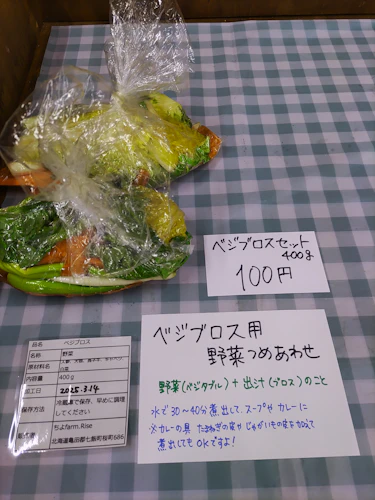 ベジブロスセット
400g
100円
ベジブロス用
野菜つめあわせ
野菜(ベジタブル)+出汁(ブロス)のこと
水で30~40分煮出して、スープやカレーに
※カレーの具 たまねぎの皮やじゃがいもの皮を加えて
煮出してもOKですよ!
品名 ベジブロス
名称: 野菜
原材料名
内容量 400g
加工日 2025.3.14
保存方法 冷蔵庫で保存、早めに調理
してください
ちよfarm.Rise
北海道亀田郡七飯町桜町686